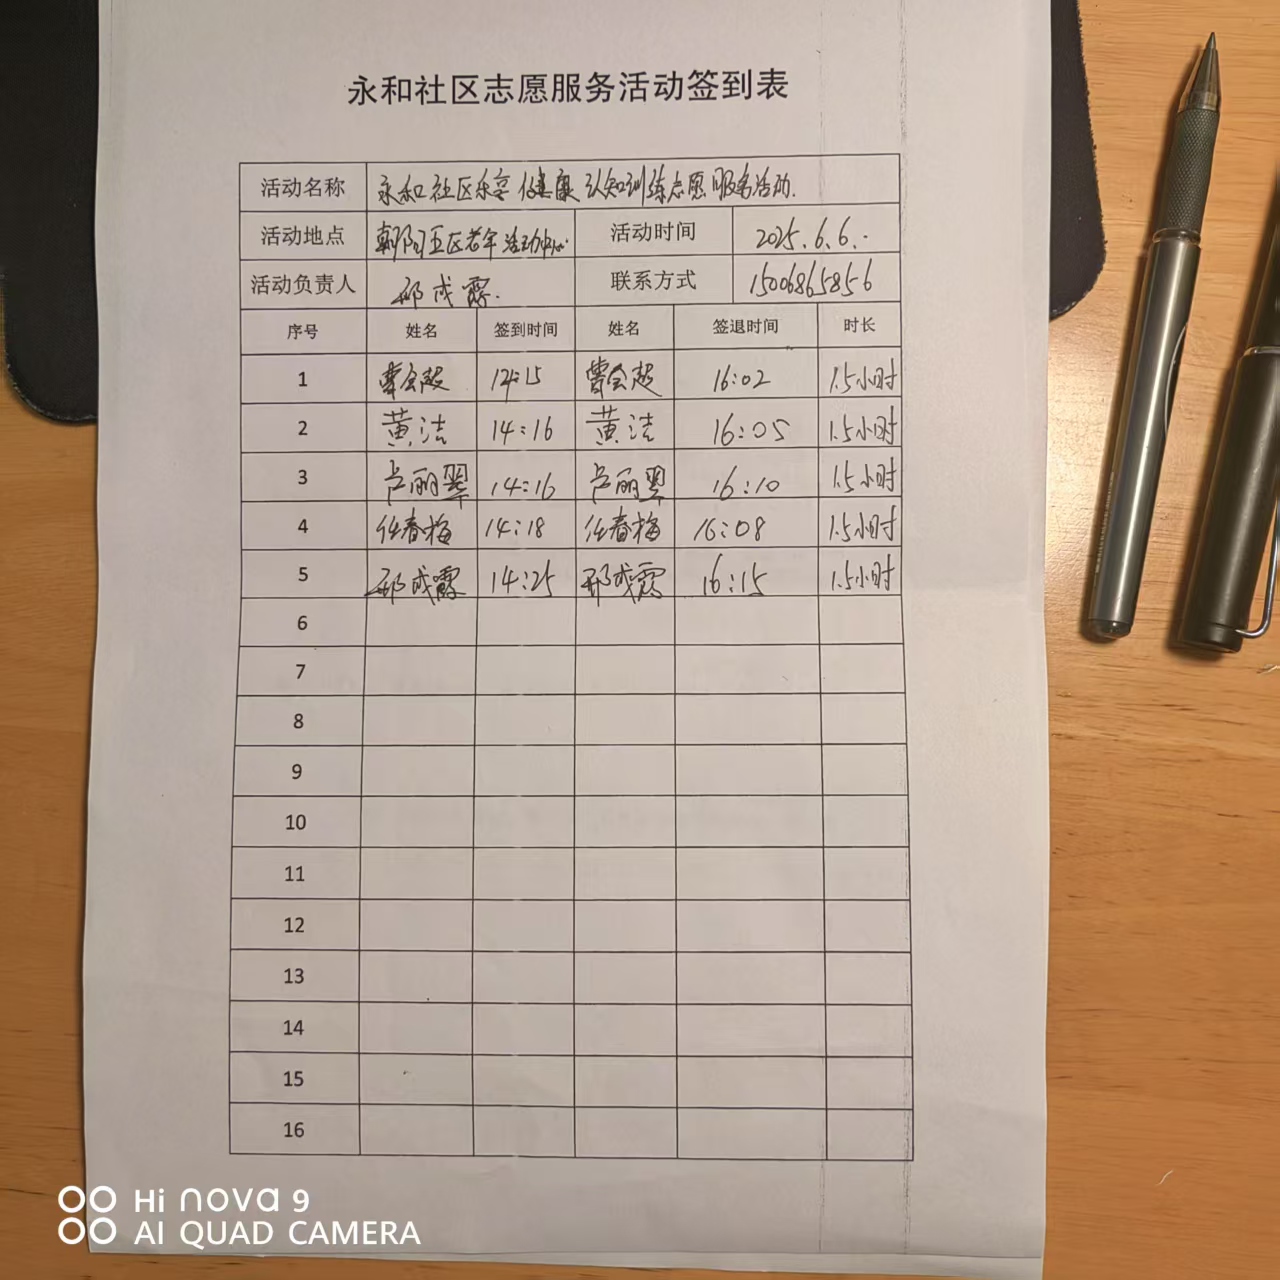 永和社区志愿服务活动签到表
活动名称 永和社区乐享健康认知训练志愿服务活动.
活动地点 朝阳五区老年活动中心. 活动时间 2025.6.6.
活动负责人 邢成霞. 联系方式 15006865856
序号 姓名 签到时间 姓名 签退时间 时长
1 曹会敏 14:15 曹会超 16:02 1.5小时
2 黄洁 14:16 黄洁 16:05 1.5小时
3 卢丽翠 14:16 卢丽翠 16:10 1.5小时
4 任春梅 14:18 任春梅 16:08 1.5小时
5 邢成霞 14:25 邢成霞 16:15 1.5小时
6
7
8
9
10
11
12
13
14
15
16
Hi nova 9
AI QUAD CAMERA